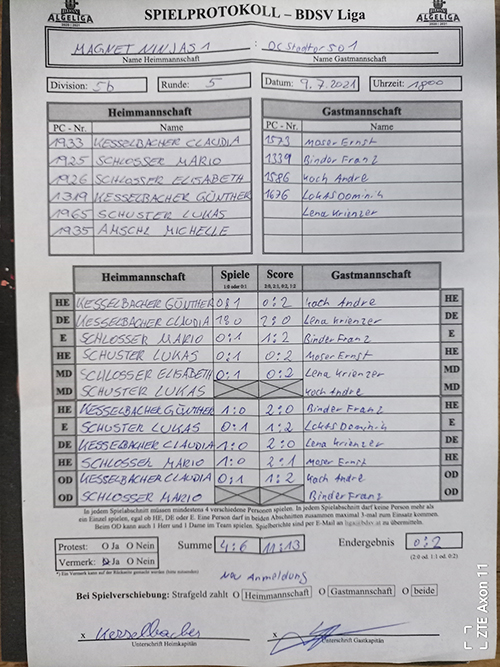 ALGELIGA
SPIELPROTOKOLL – BDSV Liga
ALGELIGA
MAGNET NINJAS 1 : DC Stadtor 501
Name Heimmannschaft Name Gastmannschaft
Division: 5b Runde: 5 Datum: 9.7.2021 Uhrzeit: 1800
Heimmannschaft Gastmannschaft
PC - Nr. Name PC - Nr. Name
1933 KESSELBACHER CLAUDIA 1573 Moser Ernst
1925 SCHLOSSER MARIO 1339 Binder Franz
1926 SCHLOSSER ELISABETH 1586 Koch Andre
1319 KESSELBACHER GÜNTHER 1676 Lokas Dominik
1965 SCHUSTER LUKAS Lena Krienzer
1935 AMSCHL MICHELLE
Heimmannschaft Spiele Score Gastmannschaft
1:0 oder 0:1 2:0, 2:1, 0:2, 1:2
HE KESSELBACHER GÜNTHER 0:1 0:2 Koch Andre HE
DE KESSELBACHER CLAUDIA 1:0 2:0 Lena Krienzer DE
E SCHLOSSER MARIO 0:1 1:2 Binder Franz E
HE SCHUSTER LUKAS 0:1 0:2 Moser Ernst HE
MD SCHLOSSER ELISABETH 0:1 0:2 Lena Krienzer MD
MD SCHUSTER LUKAS Koch Andre MD
HE KESSELBACHER GÜNTHER 1:0 2:0 Binder Franz HE
E SCHUSTER LUKAS 0:1 1:2 Lokas Dominik E
DE KESSELBACHER CLAUDIA 1:0 2:0 Lena Krienzer DE
HE SCHLOSSER MARIO 1:0 2:1 Moser Ernst HE
OD KESSELBACHER CLAUDIA 0:1 1:2 Koch Andre OD
OD SCHLOSSER MARIO Binder Franz OD
In jedem Spielabschnitt müssen mindestens 4 verschiedene Personen spielen. In jedem Spielabschnitt darf keine Person mehr als
ein Einzel spielen, egal ob HE, DE oder E. Eine Person darf in beiden Abschnitten zusammen maximal 3-mal zum Einsatz kommen.
Beim OD kann auch 1 Herr und 1 Dame im Team spielen. Spielberichte sind per E-Mail an liga@bdsv.at zu übermitteln.
Protest: O Ja O Nein Summe 4:6 11:13 Endergebnis 0:2
Vermerk: O Ja O Nein (2:0 od. 1:1 od. 0:2)
*) Ein Vermerk kann auf der Rückseite gemacht werden (bitte ankreuzen)
Neu Anmeldung
Bei Spielverschiebung: Strafgeld zahlt O Heimmannschaft O Gastmannschaft O beide
x Kesselbacher x
Unterschrift Heimkapitän Unterschrift Gastkapitän
ZTE Axon 11